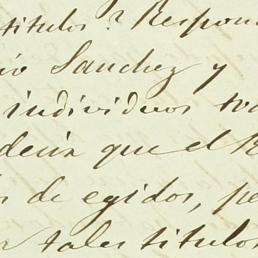 titulos? Respon
Sanchez y
individuos
decia que el
de egidos, pe
tales titulos